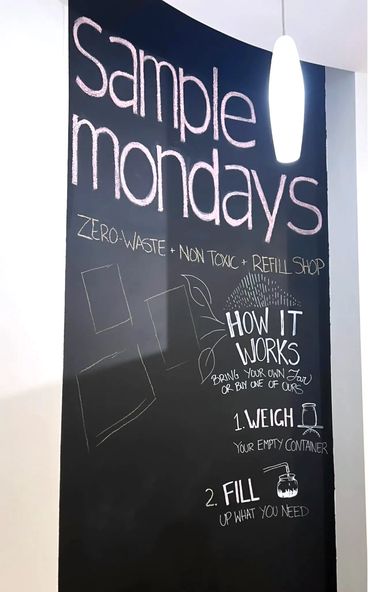 sample
mondays
ZERO-WASTE + NON TOXIC + REFILL SHOP
HOW IT
WORKS
BRING YOUR OWN Jar
OR BUY ONE OF OURS
1. WEIGH
YOUR EMPTY CONTAINER
2. FILL
UP WHAT YOU NEED